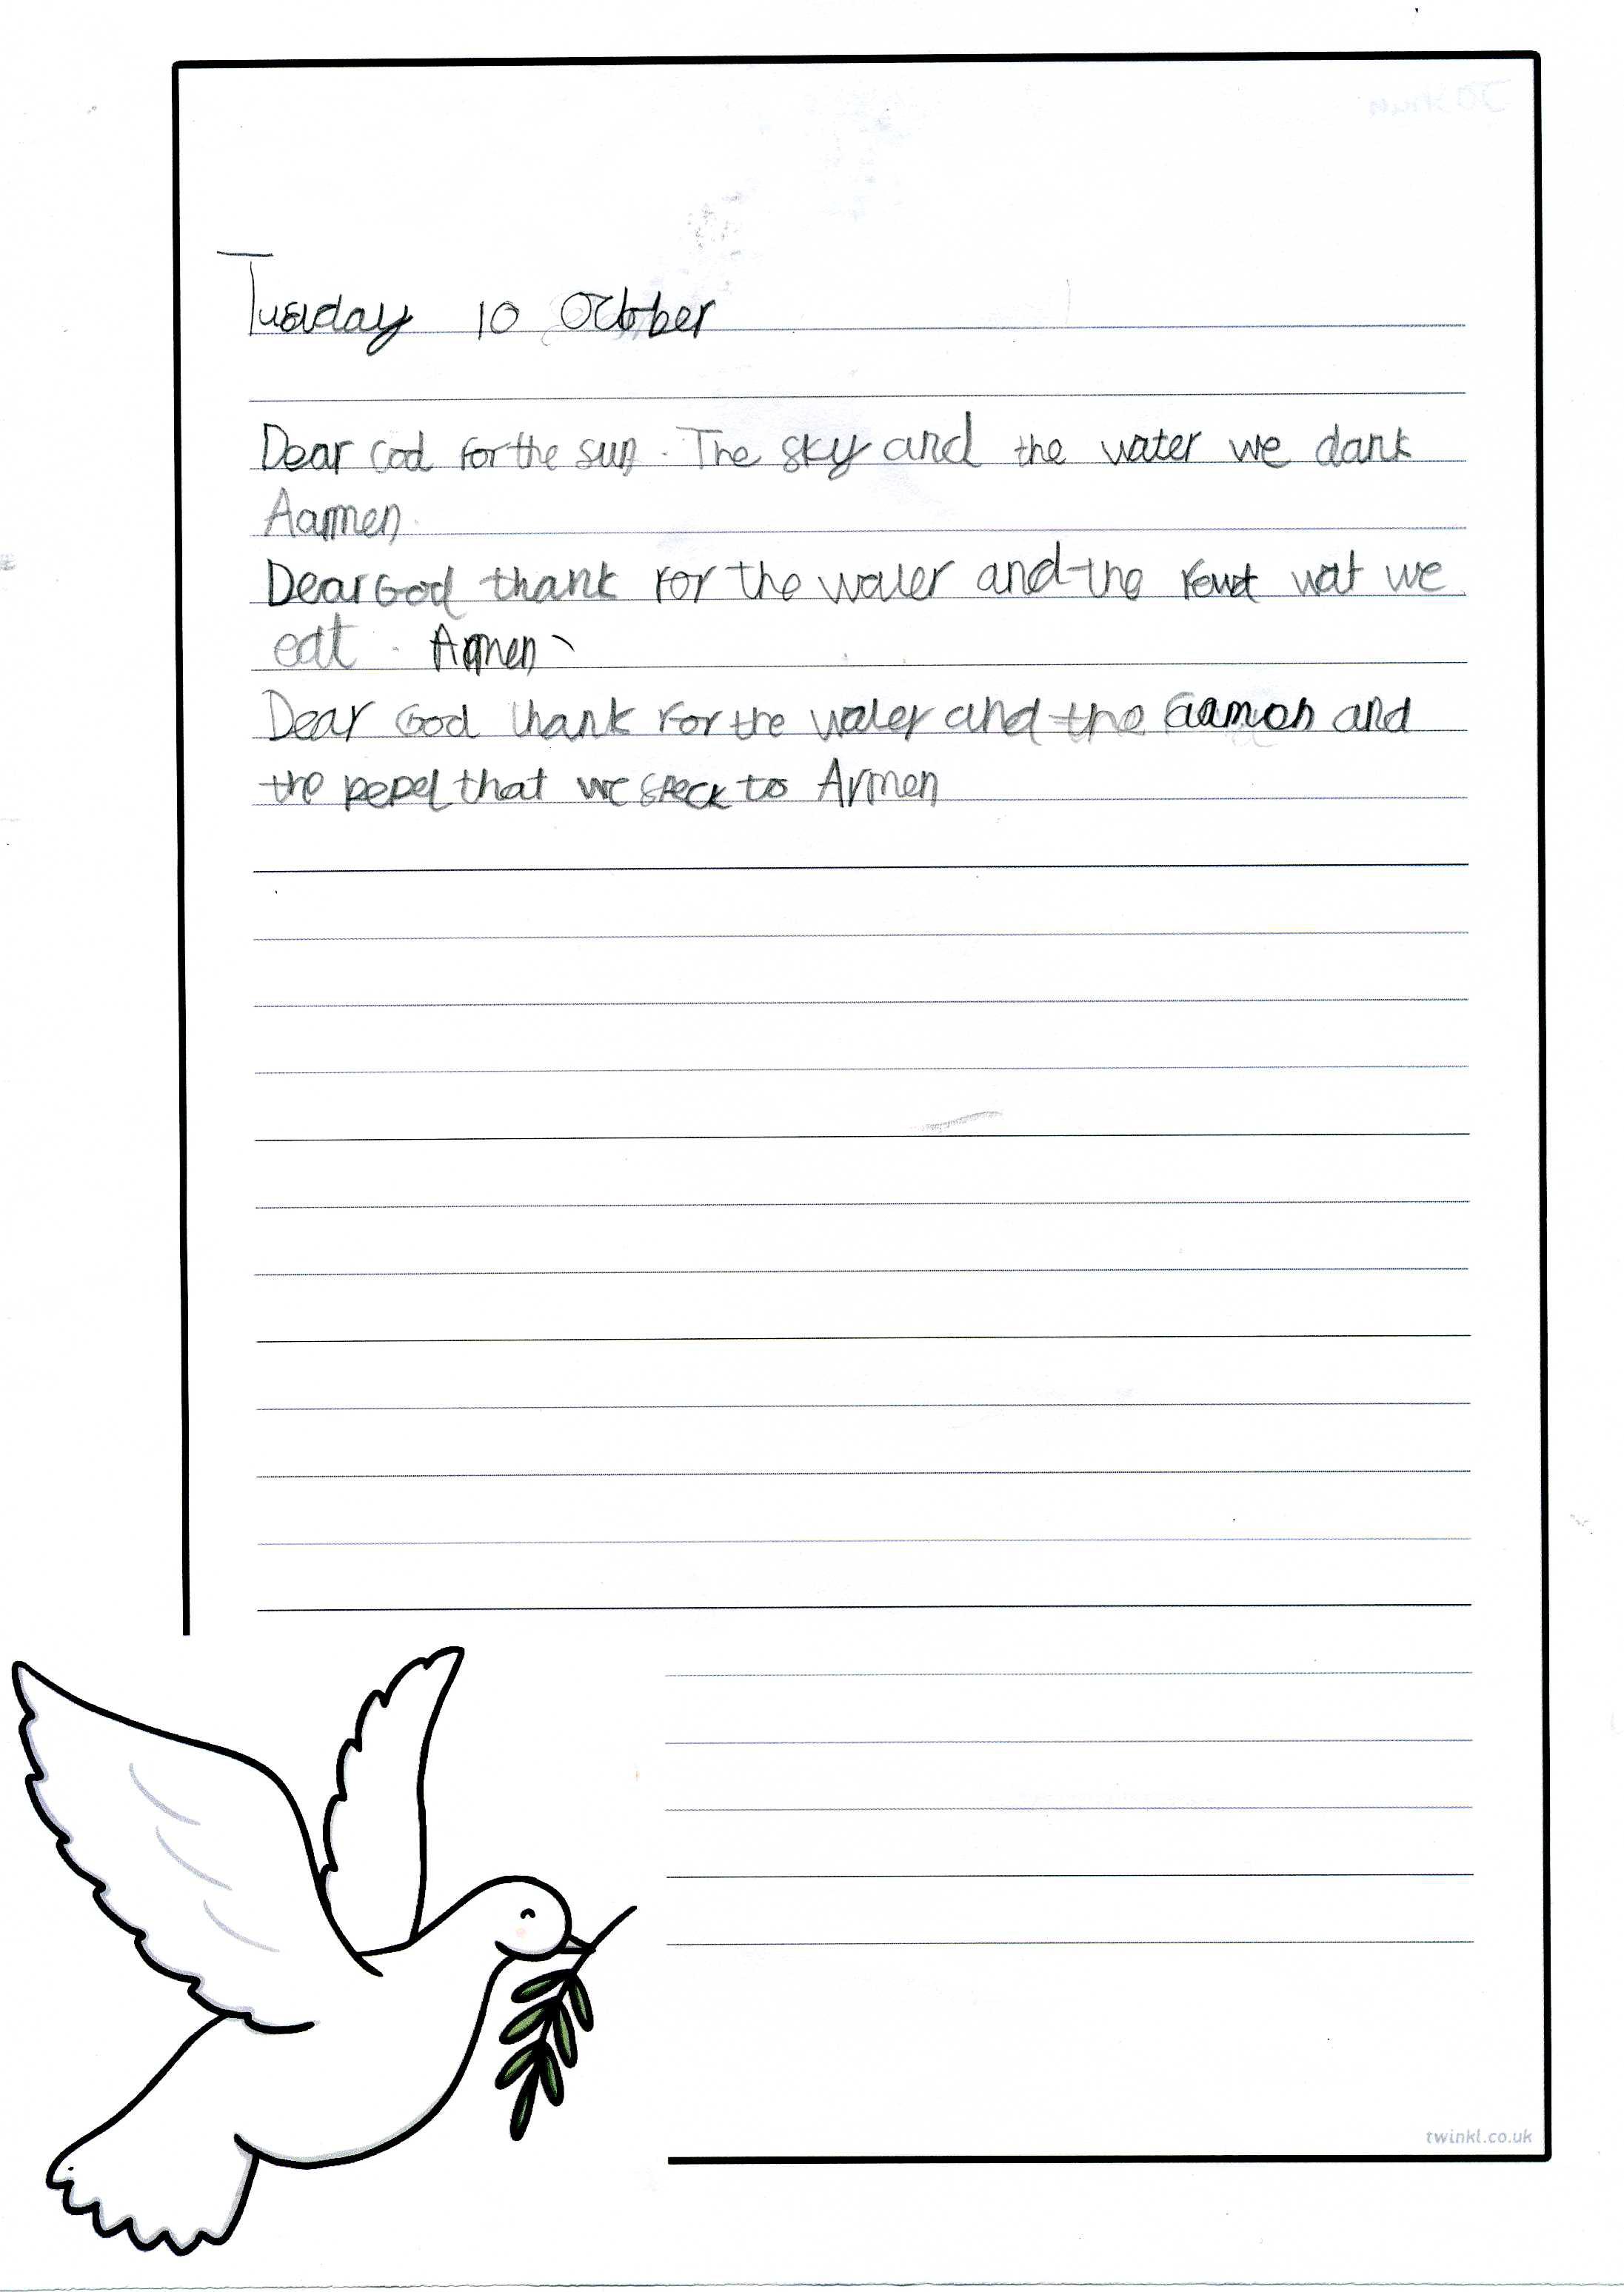 Tuesday 10 October
Dear God for the sun. The sky and the water we dank
Aamen.
Dear God thank for the water and the wat we
eat. Amen
Dear God thank for the water and the and
the pepel that we speck to Armen
twinkl.co.uk